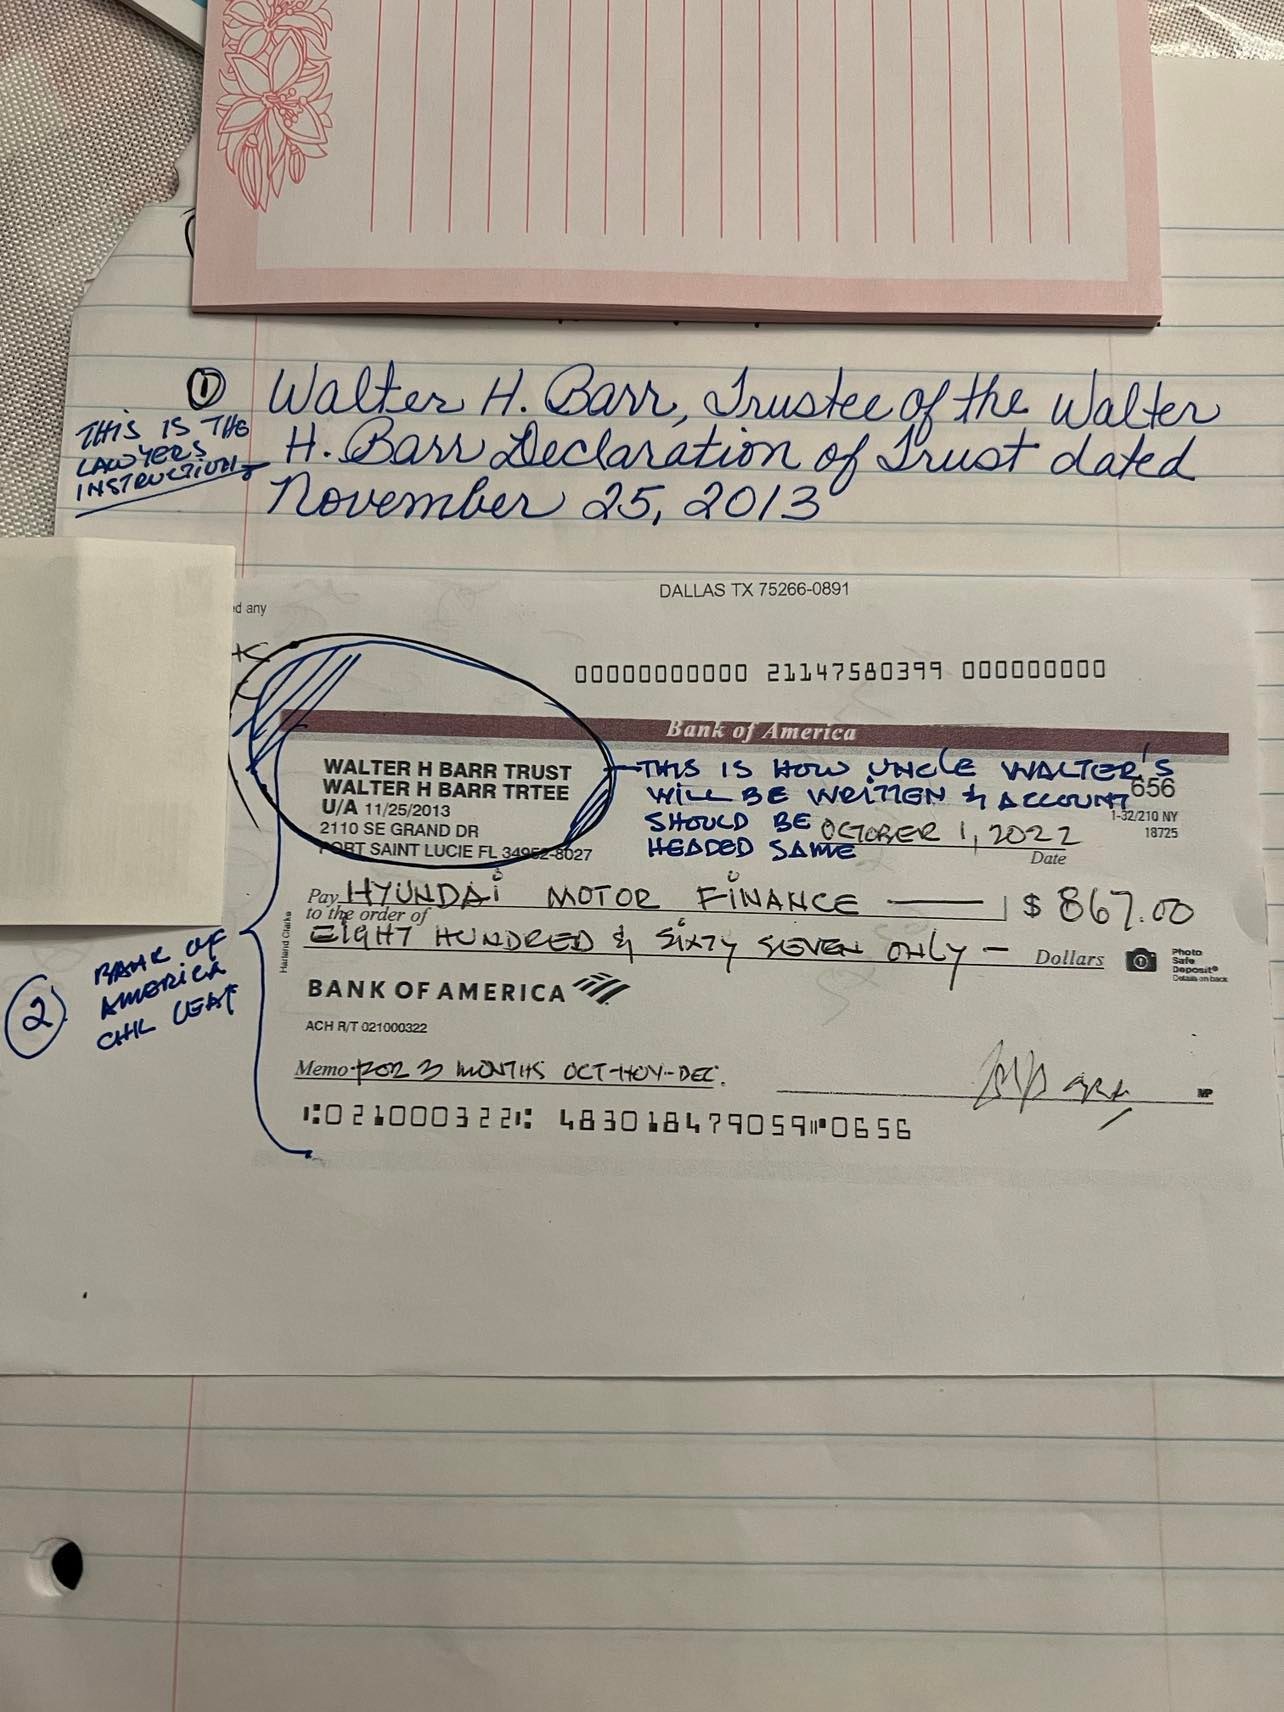 ① Walter H. Barr, Trustee of the Walter
H. Barr Declaration of Trust dated
November 25, 2013
THIS IS THE
LAWYERS
INSTRUCTIONS
DALLAS TX 75266-0891
ed any
00000000000 21147580399 000000000
Bank of America
WALTER H BARR TRUST
WALTER H BARR TRTEE
U/A 11/25/2013
2110 SE GRAND DR
PORT SAINT LUCIE FL 34952-8027
THIS IS HOW UNCLE WALTER'S
WILL BE WRITTEN & ACCOUNT
SHOULD BE
HEADED SAME
656
1-32/210 NY
18725
OCTOBER 1, 2022
Date
Pay HYUNDAI MOTOR FINANCE $ 867.00
to the order of
EIGHT HUNDRED & SIXTY SEVEN ONLY — Dollars
Photo
Safe
Deposit®
Details on back
Harland Clarke
② BANK OF
AMERICA
CHK LEAF
BANK OF AMERICA
ACH R/T 021000322
Memo FOR 3 MONTHS OCT-NOV-DEC.
MP
⑆021000322⑆ 483018479059⑈0656